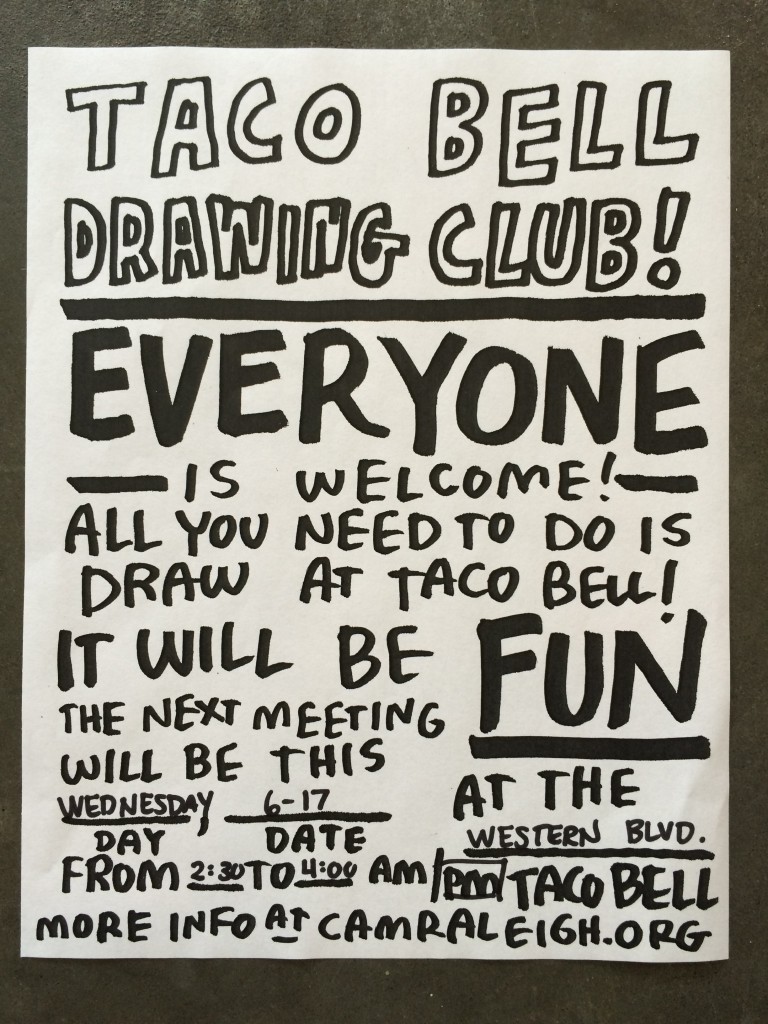 TACO BELL
DRAWING CLUB!
EVERYONE
IS WELCOME!
ALL YOU NEED TO DO IS
DRAW AT TACO BELL!
IT WILL BE FUN
THE NEXT MEETING
WILL BE THIS
WEDNESDAY, 6-17
DAY DATE
FROM 2:30 TO 4:00 AM/PM
AT THE
WESTERN BLVD.
TACO BELL
MORE INFO AT CAMRALEIGH.ORG